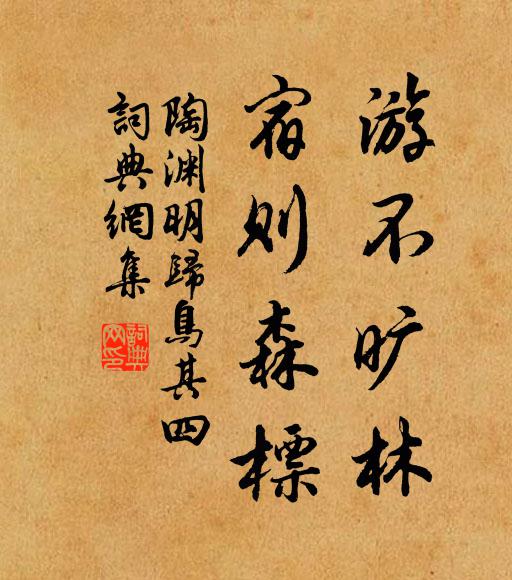 游不旷林
宿则森標
陶渊明歸鳥其四
詞典網集
詞典网印